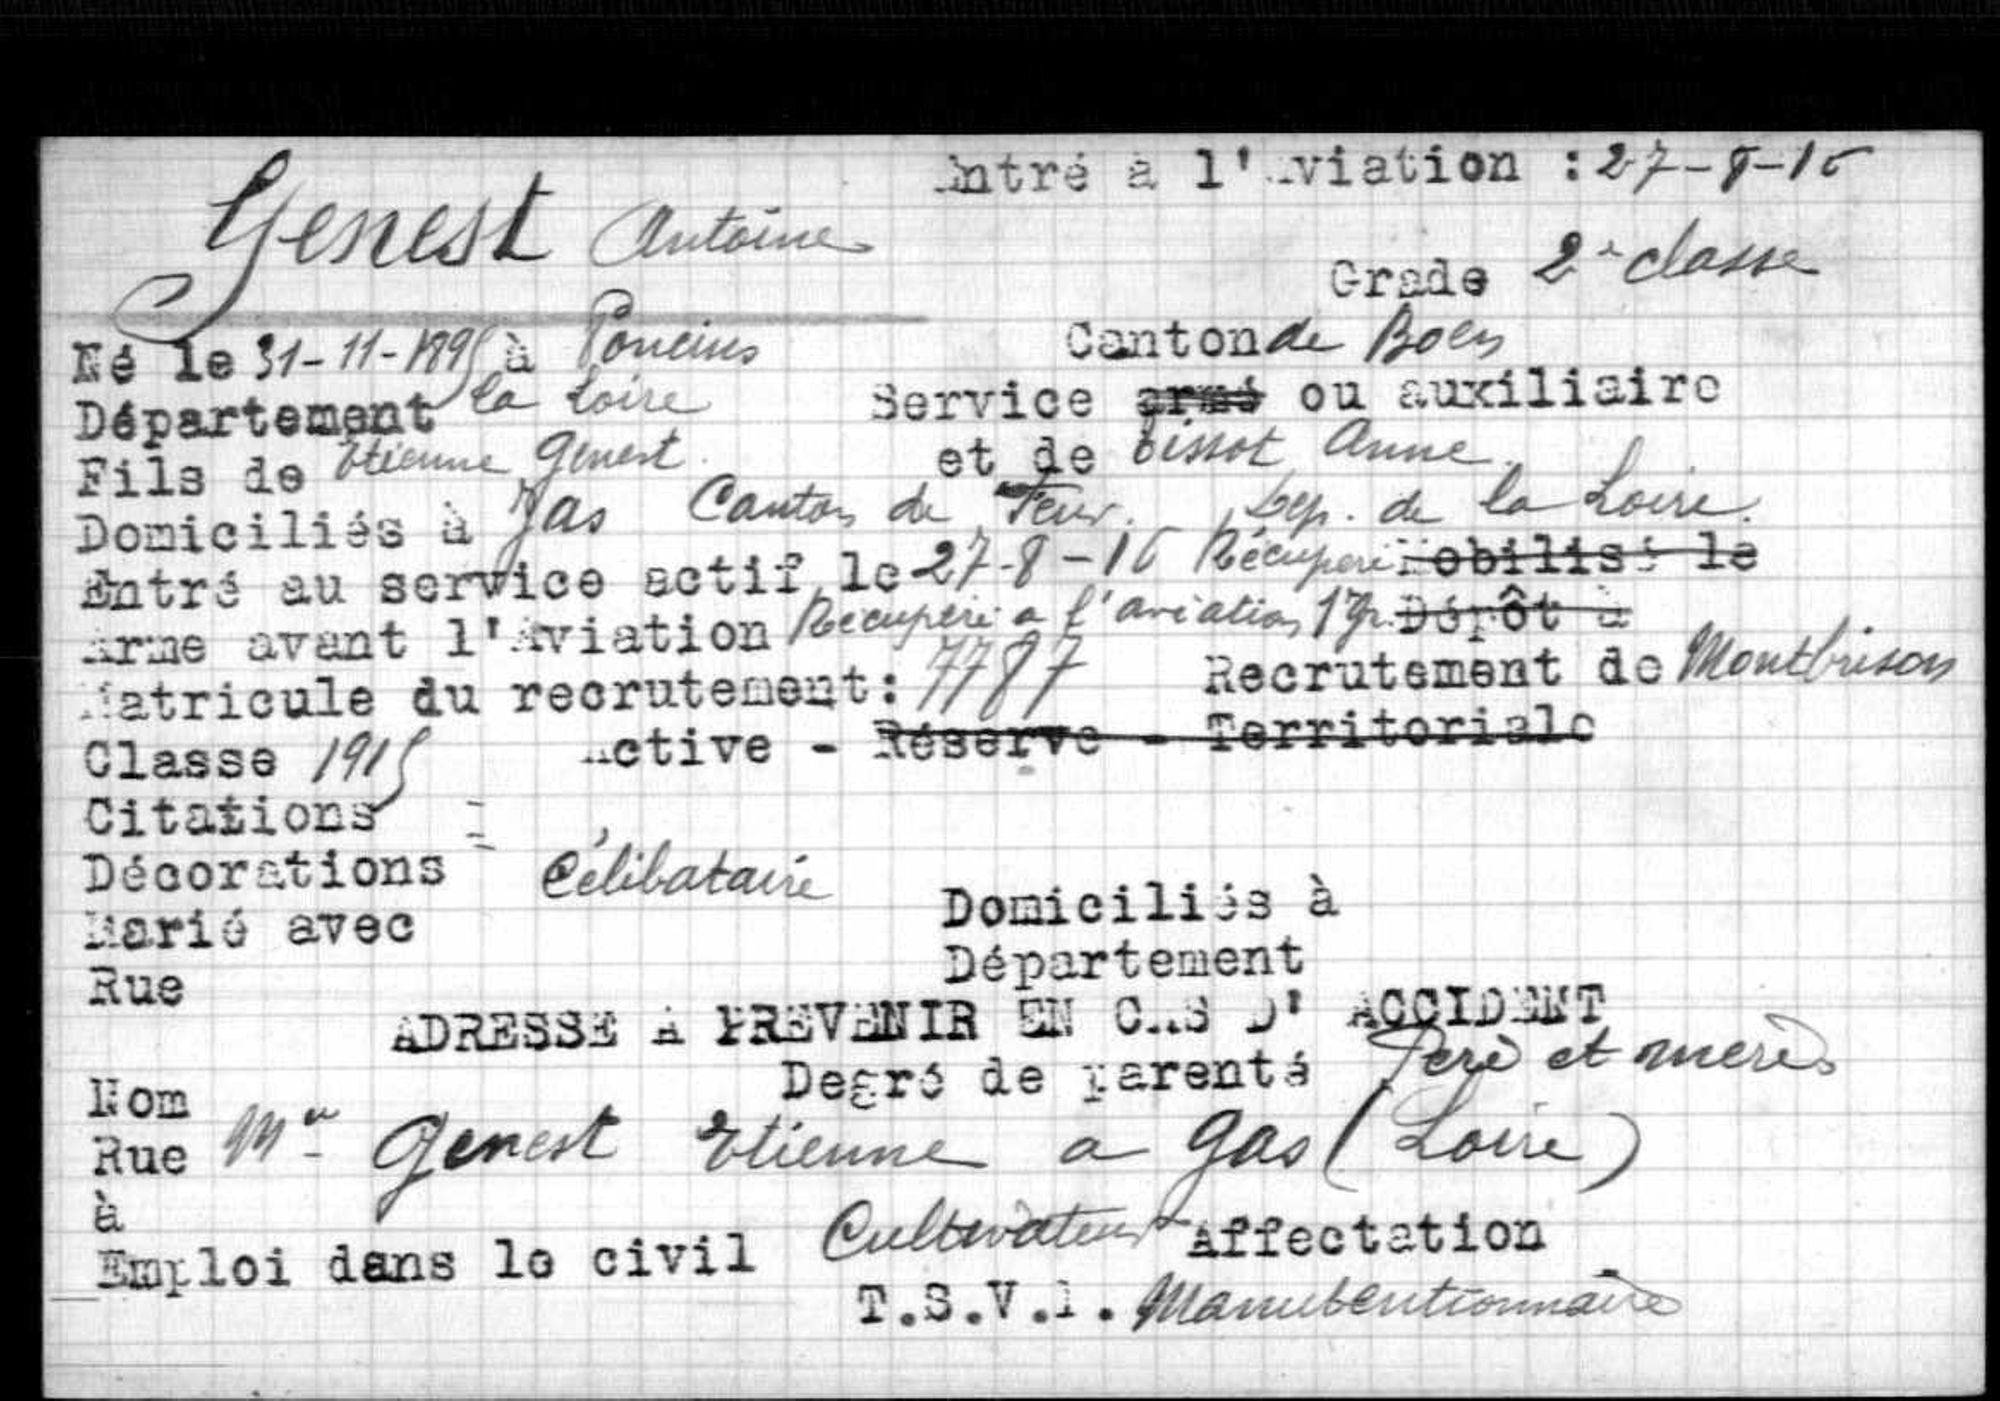 Entré à l'Aviation : 27-8-16
Genest Antoine
Grade 2e classe
Né le 31-11-1895 à Poncins Canton de Boën
Département la Loire Service ~~armé~~ ou auxiliaire
Fils de Etienne Genest. et de Tissot Anne.
Domiciliés à Jas Canton de Feur. Dep. de la Loire.
Entré au service actif le 27-8-16 Récupéré ~~Mobilisé le~~
Arme avant l'Aviation Récupéré a l'aviation 1er gr. ~~Dépôt à~~
Matricule du recrutement: 7787 Recrutement de Montbrison
Classe 1915 Active - ~~Réserve - Territoriale~~
Citations =
Décorations
Célibataire
Marié avec Domiciliés à
Rue Département
ADRESSE A PREVENIR EN CAS D' ACCIDENT
Nom Degré de parenté Perè et merè
Rue Mr Genest Etienne a Gas (Loire)
à
Emploi dans le civil Cultivateur Affectation
T.S.V.I. Manubentionnaire